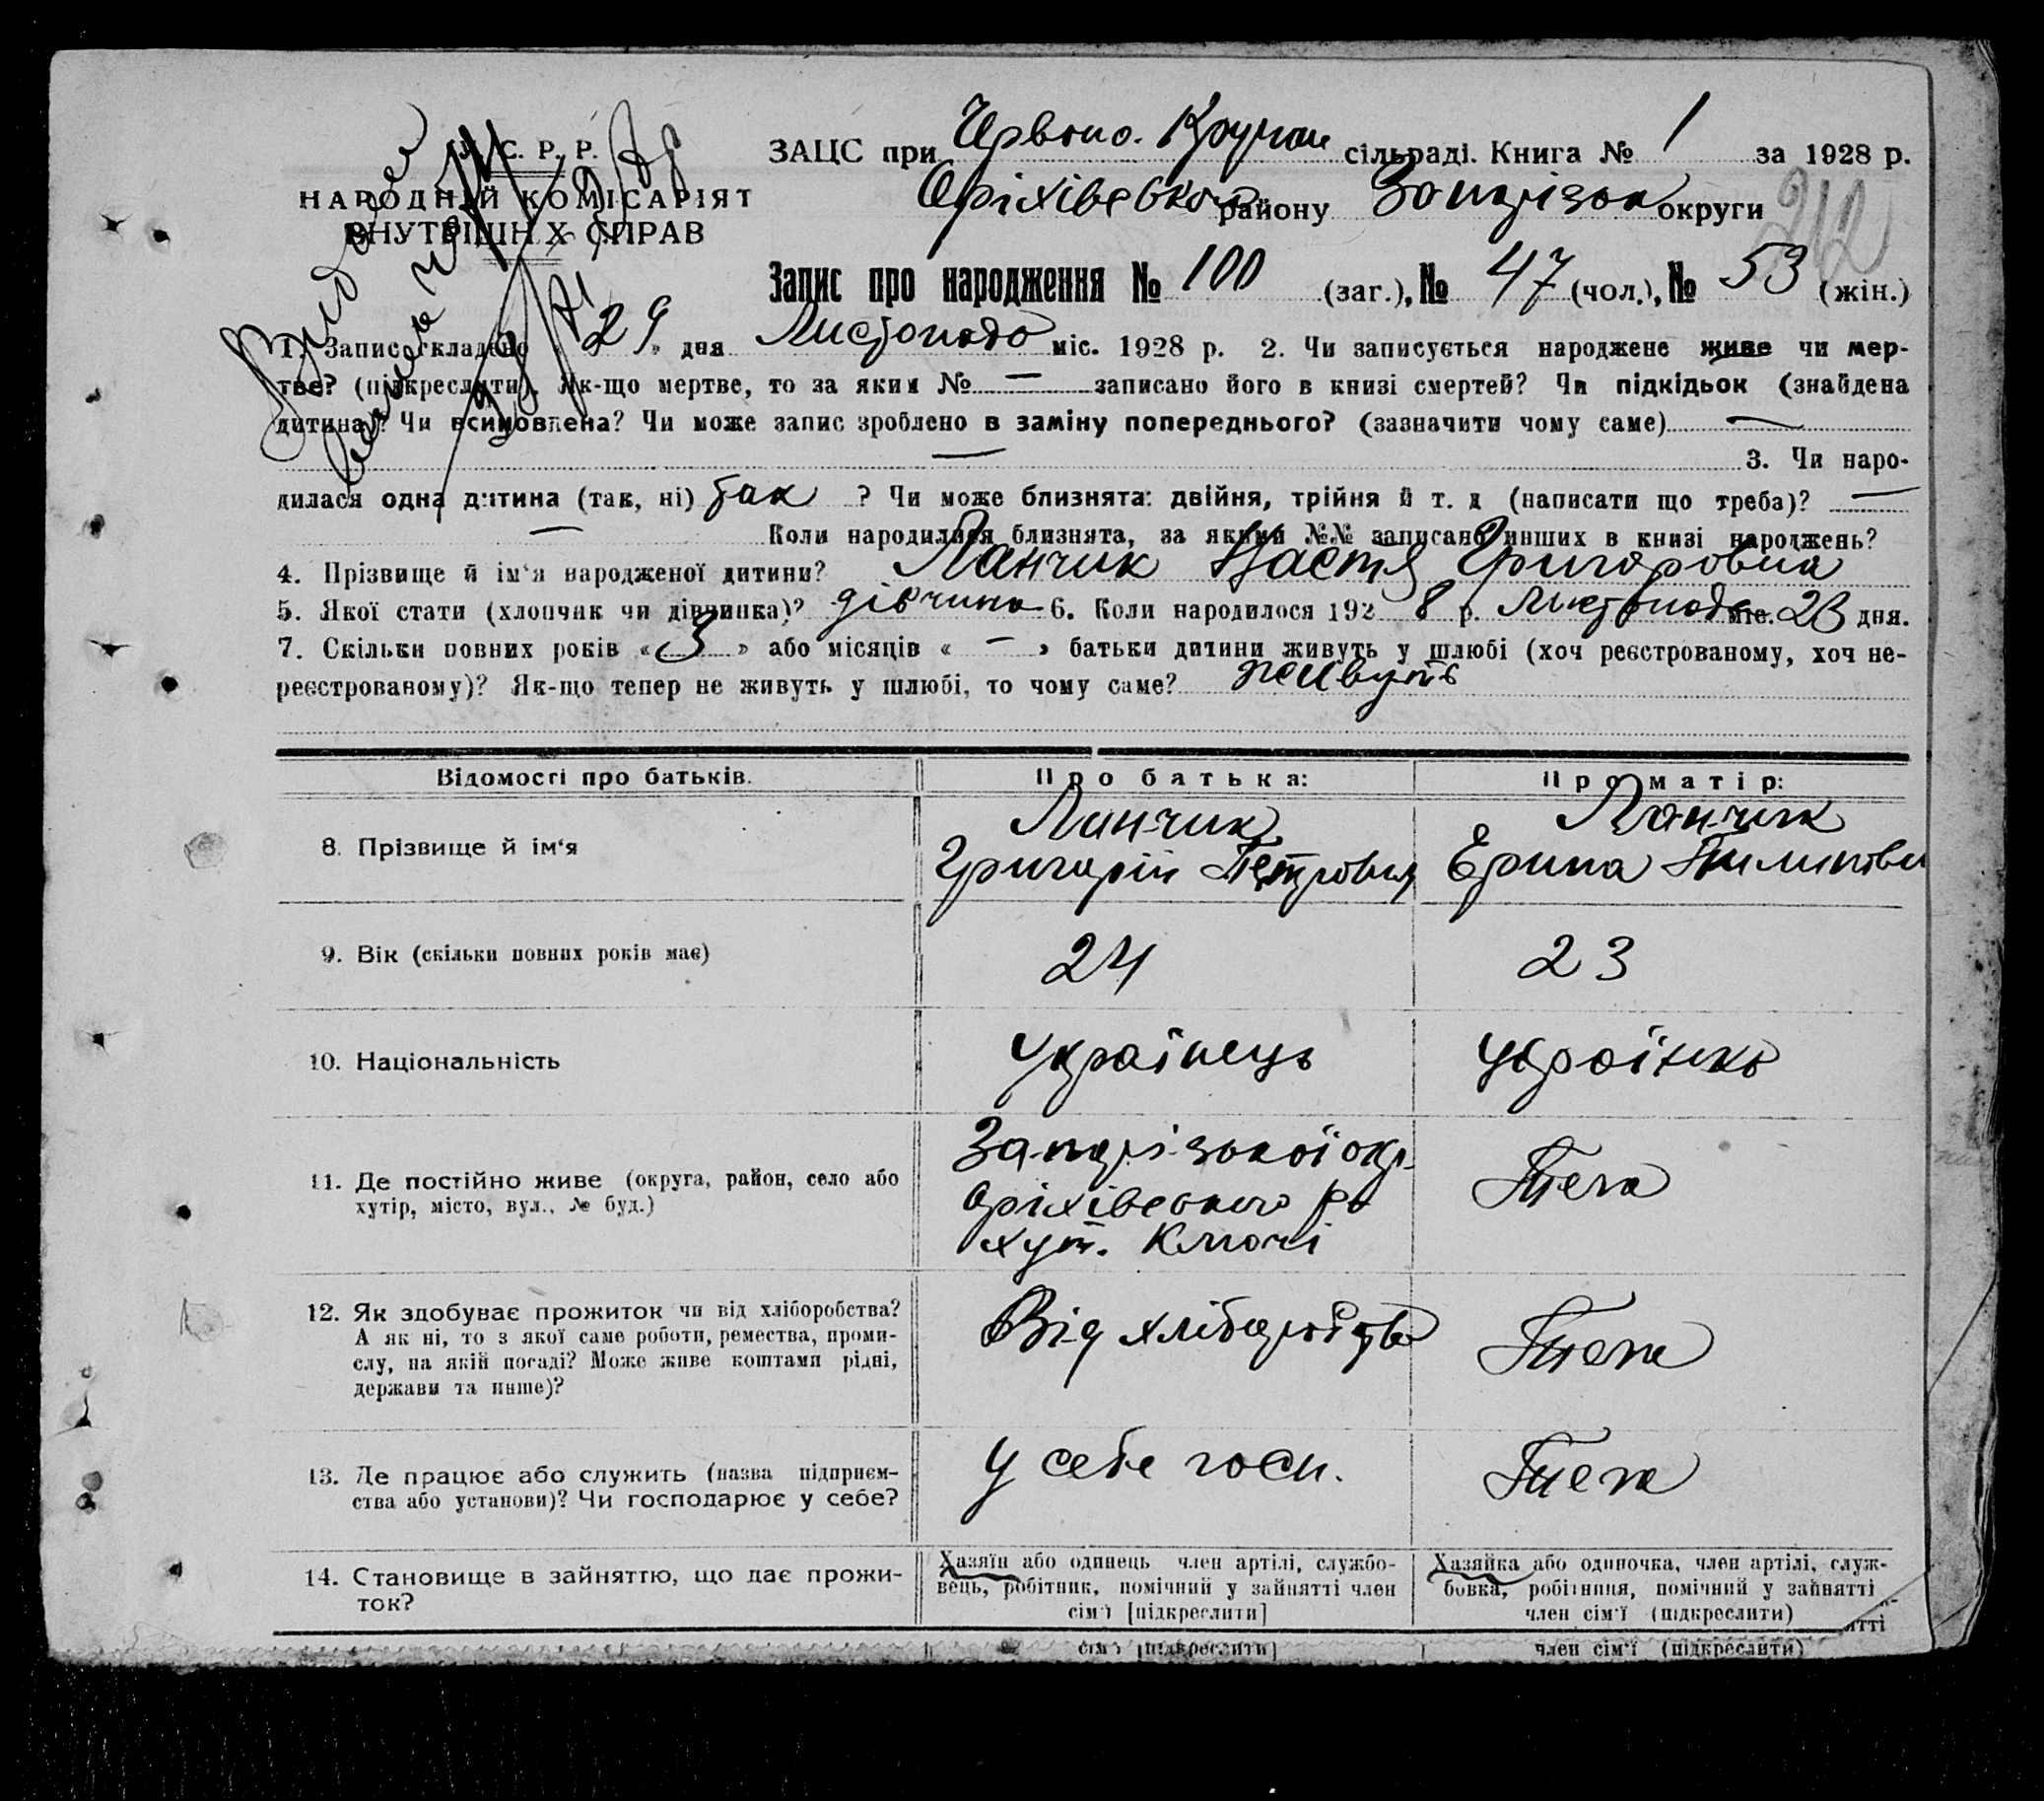 У. С. Р. Р.
НАРОДНІЙ КОМІСАРІЯТ
ВНУТРІШНІХ СПРАВ
ЗАЦС при Червоно. Кр сільраді. Книга № 1 за 1928 р.
Оріхівського району Запорізьк округи
212
Запис про народження № 100 (заг.), № 47 (чол.), № 53 (жін.)
1. Запис складено « 29 » дня Листопада міс. 1928 р. 2. Чи записується народжене живе чи мер-
тве? (підкреслити). Як-що мертве, то за яким № — записано його в книзі смертей? Чи підкідьок (знайдена
дитина)? Чи всиновлена? Чи може запис зроблено в заміну попереднього? (зазначити чому саме) —
— 3. Чи наро-
дилася одна дитина (так, ні) так ? Чи може близнята: двійня, трійня й т. д (написати що треба)? —
— Коли народилися близнята, за якими №№ записано инших в книзі народжень?
4. Прізвище й ім'я народженої дитини? Ланчик Настя Григоровна
5. Якої стати (хлопчик чи дівчинка)? дівчина 6. Коли народилося 192 8 р. Листопада міс. 23 дня.
7. Скільки повних років « 3 » або місяців « — » батьки дитини живуть у шлюбі (хоч реєстрованому, хоч не-
реєстрованому)? Як-що тепер не живуть у шлюбі, то чому саме? живуть
Відомості про батьків.
Про батька:
Про матір:
8. Прізвище й ім'я
Ланчик
Григорій Петрович
Ланчик
Ерина
9. Вік (скільки повних років має)
24
23
10. Національність
Українець
Українка
11. Де постійно живе (округа, район, село або
хутір, місто, вул., № буд.)
Запорізької окр.
Оріхівського р
хут. Ключі
Теж
12. Як здобуває прожиток чи від хліборобства?
А як ні, то з якої саме роботи, ремества, проми-
слу, на якій посаді? Може живе коштами рідні,
держави та инше)?
Від хліборобства
Теж
13. Де працює або служить (назва підприєм-
ства або установи)? Чи господарює у себе?
У себе госп.
Теж
14. Становище в зайняттю, що дає прожи-
ток?
Хазяїн або одинець член артілі, службо-
вець, робітник, помічний у зайнятті член
сім'ї [підкреслити]
Хазяйка або одиночка, член артілі, служ-
бовка, робітниця, помічний у зайнятті
член сім'ї (підкреслити)
ятті
сім'ї [підкреслити]
член сім'ї (підкреслити)